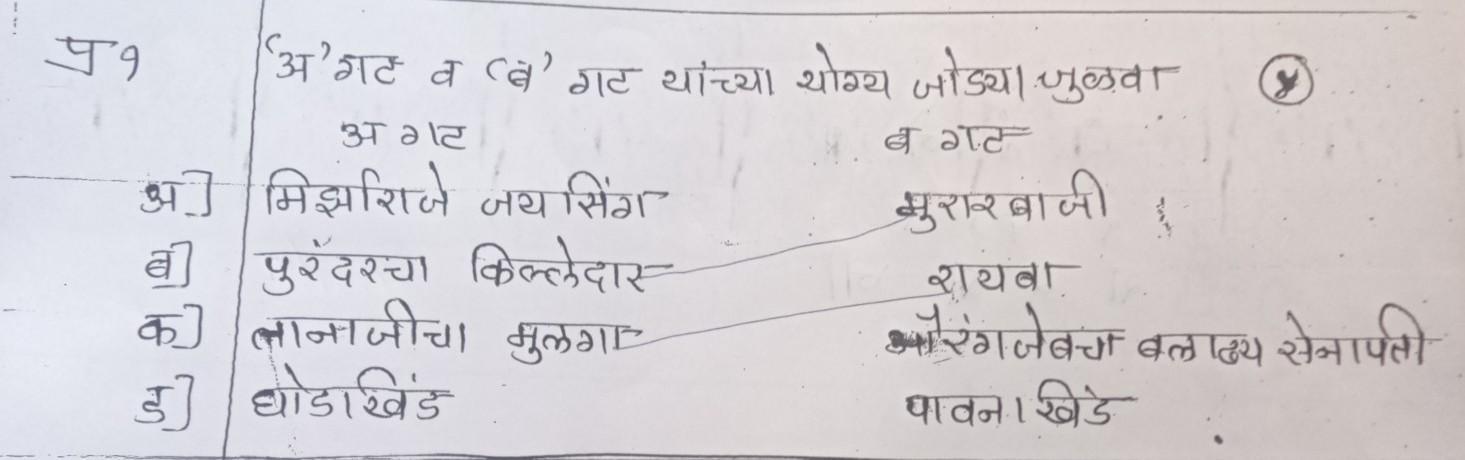 प्र १ 'अ' गट व 'ब' गट यांच्या योग्य जोड्या जुळवा ४
अ गट ब गट
अ] मिर्झाराजे जयसिंग मुरारबाजी
ब] पुरंदरचा किल्लेदार रायबा
क] तानाजीचा मुलगा औरंगजेबचा बलाढ्य सेनापती
ड] घोडाखिंड पावनाखिंड